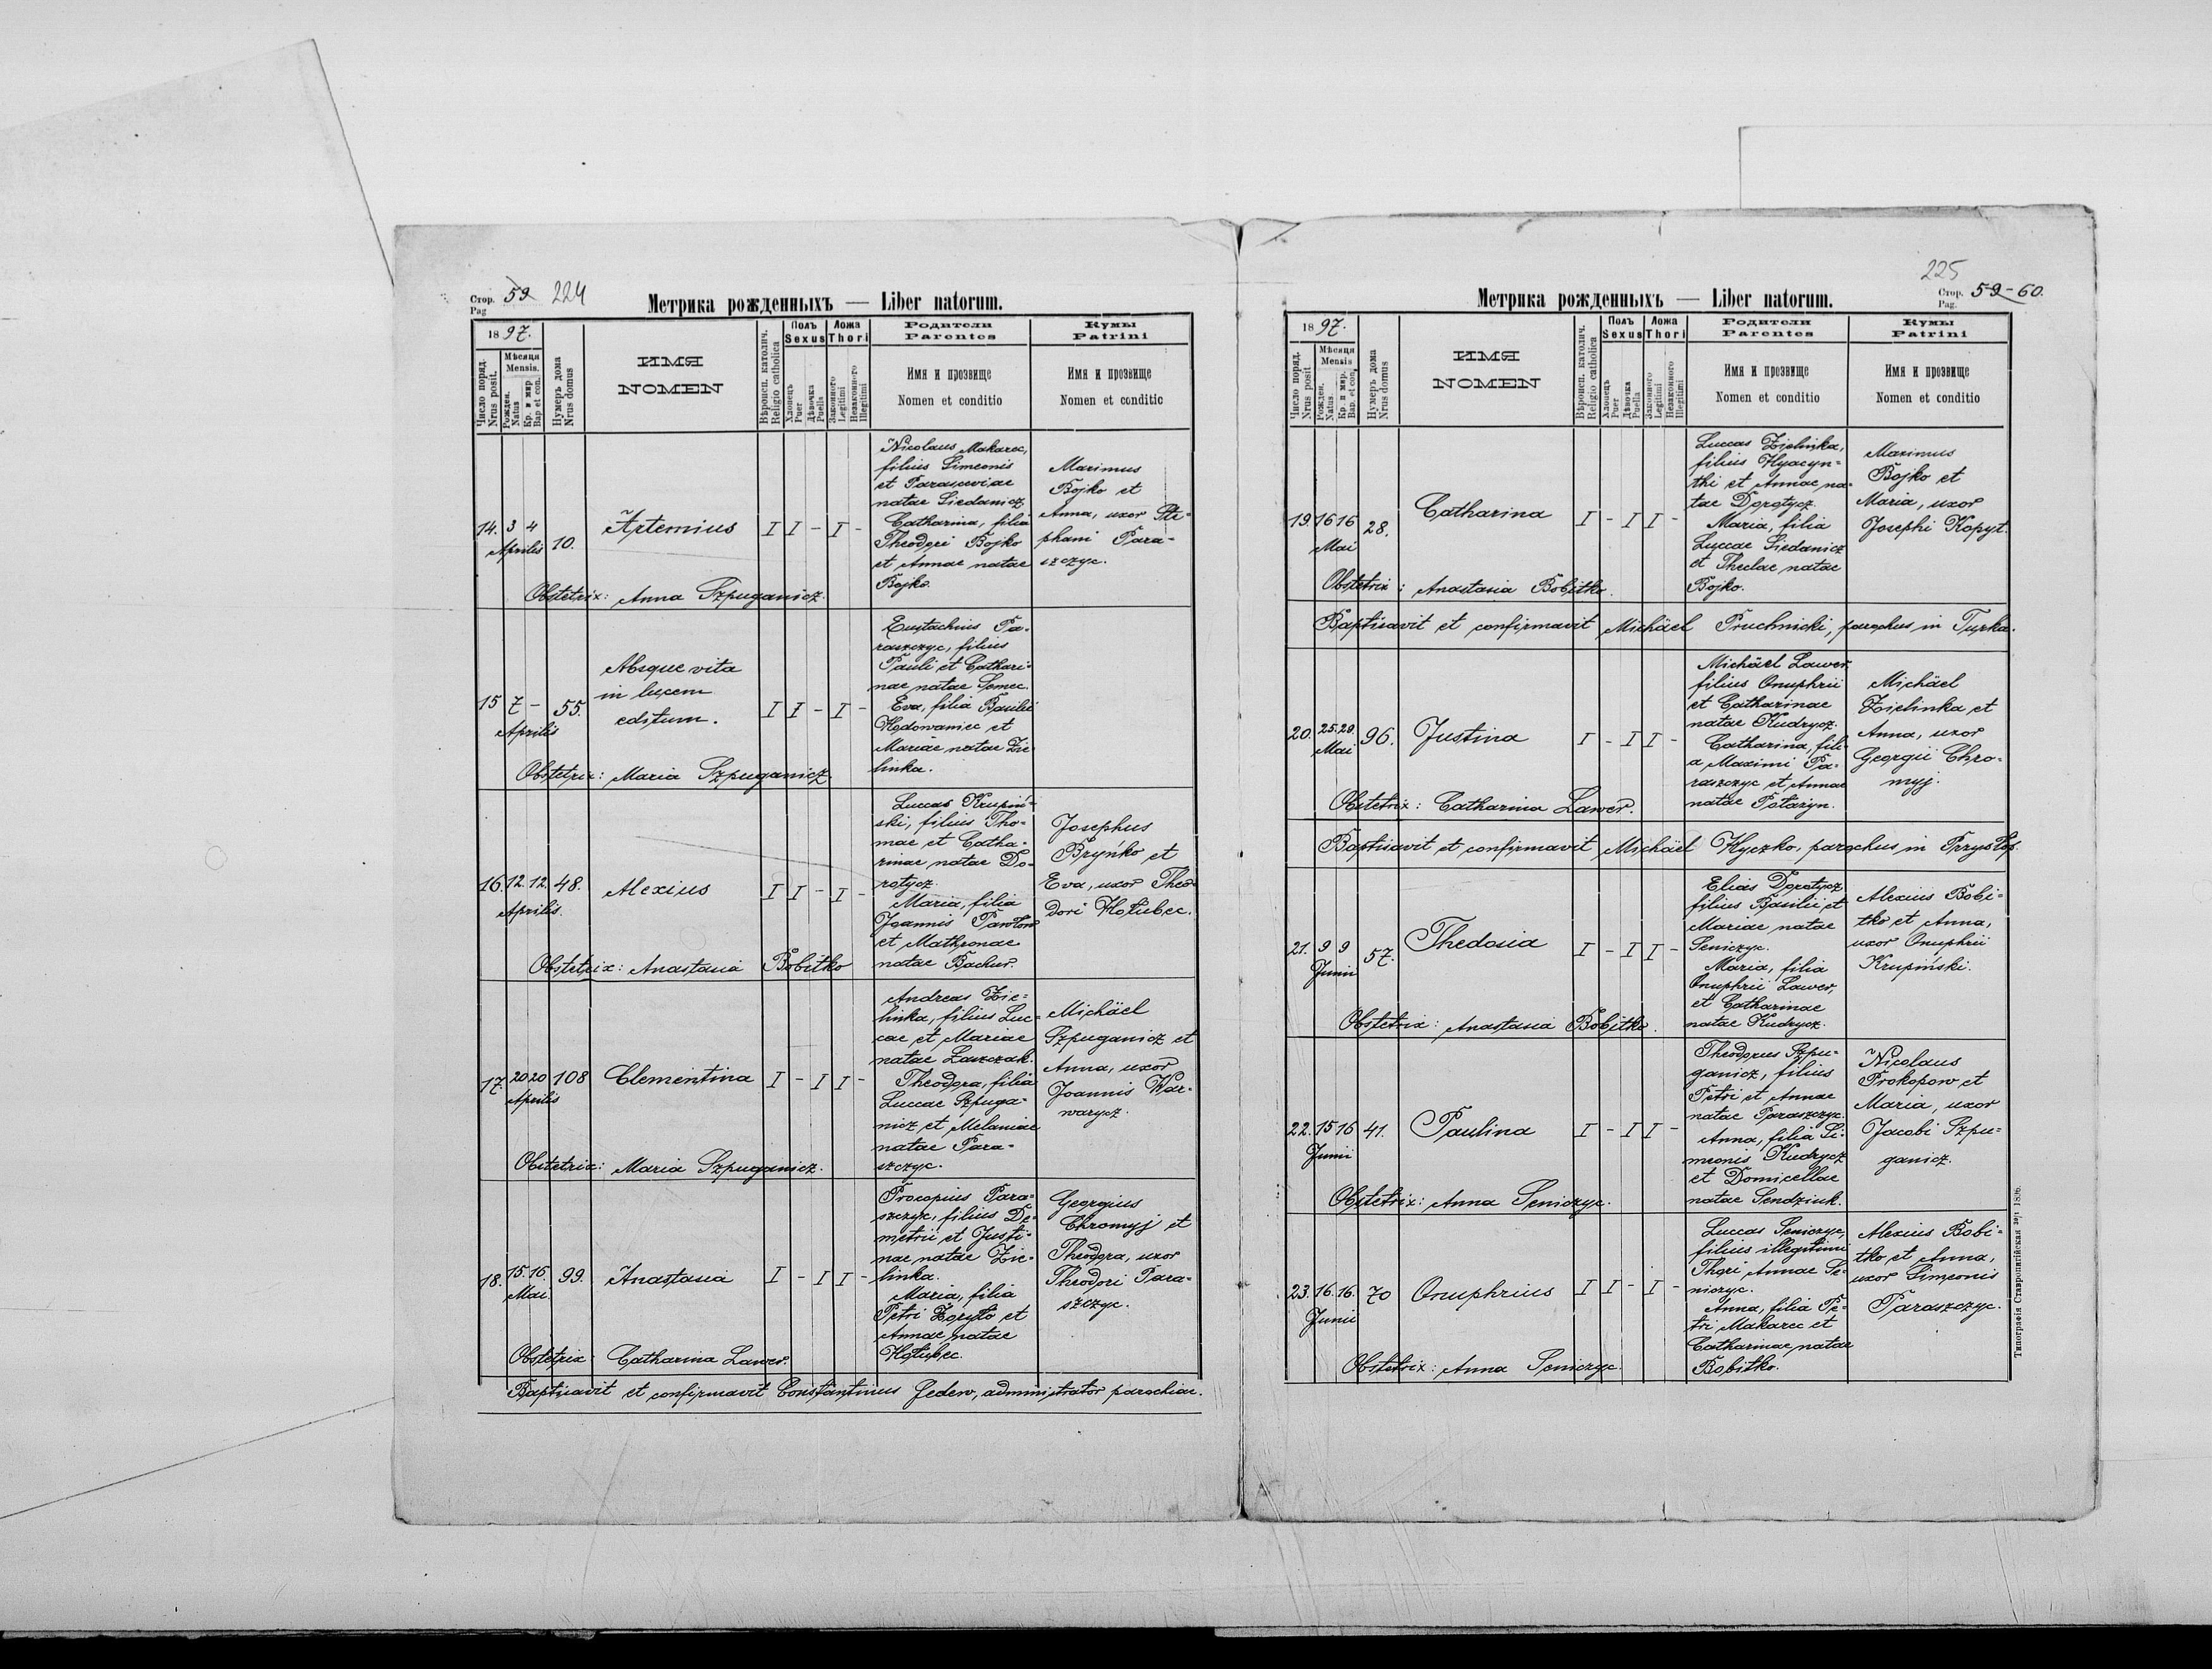 Стор. 59 224
Pag
Метрика рожденныхъ — Liber natorum.
1897.
Число поряд.
Nrus posit.
Мѣсяця
Mensis.
Рожден.
Natus
Кр. и мир.
Bap et con.
Нумеръ дома
Nrus domus
ИМЯ
NOMEN
Вѣроисп. католич.
Religio catholica
Полъ
Sexus
Хлопецъ
Puer
Дѣвочка
Puella
Ложа
Thori
Законного
Legitimi
Незаконного
Illegitimi
Родители
Parentes
Имя и прозвище
Nomen et conditio
Кумы
Patrini
Имя и прозвище
Nomen et conditio
14. 3 4 Aprilis 10. Artemius I I - I -
Nicolaus Makarec,
filius Simeonis
et Parasceviae
natae Siedanicz
Catharina, filia
Theodori Bojko
et Annae natae
Bojko.
Maximus
Bojko et
Anna, uxor Ste-
phani Para-
szczyc.
Obstetrix: Anna Szpuganicz.
15 7 - Aprilis 55.
Absque vita
in lucem
editum.
I I - I -
Eustachius Pa-
raszczyc, filius
Pauli et Cathari-
nae natae Semec.
Eva, filia Basilii
Hędowaniec et
Mariae natae Zie-
linka.
Obstetrix: Maria Szpuganicz
16. 12. 12. Aprilis. 48. Alexius I I - I -
Luccas Krupiń-
ski, filius Tho-
mae et Catha-
rinae natae Do-
rotycz.
Maria, filia
Joannis Pawłow
et Mathronae
natae Bachur.
Josephus
Bryńko et
Eva, uxor Theo-
dori Hołubec.
Obstetrix: Anastasia Bobitko
17. 20 20 Aprilis 108 Clementina I - I I -
Andreas Zie-
linka, filius Luc-
cae et Mariae
natae Laszczak.
Theodora, filia
Luccae Szpuga-
nicz et Melaniae
natae Para-
szczyc.
Michäel
Szpuganicz et
Anna, uxor
Joannis War-
warycz.
Obstetrix: Maria Szpuganicz.
18. 15. 16. Mai. 99. Anastasia I - I I -
Procopius Para-
szczyc, filius De-
metrii et Justi-
nae natae Zie-
linka.
Maria, filia
Petri Zoryło et
Annae natae
Hołubec.
Georgius
Chromyj et
Theodora, uxor
Theodori Para-
szczyc.
Obstetrix: Catharina Lawer.
Baptisavit et confirmavit Constantinus Fedew, administrator parochiae.
225
Стор. 59-60.
Pag.
Метрика рожденныхъ — Liber natorum.
1897.
Число поряд.
Nrus posit.
Мѣсяця
Mensis
Рожден.
Natus
Кр. и мир.
Bap. et con.
Нумеръ дома
Nrus domus
ИМЯ
NOMEN
Вѣроисп. католич.
Religio catholica
Полъ
Sexus
Хлопецъ
Puer
Дѣвочка
Puella
Ложа
Thori
Законного
Legitimi
Незаконного
Illegitimi
Родители
Parentes
Имя и прозвище
Nomen et conditio
Кумы
Patrini
Имя и прозвище
Nomen et conditio
19. 16 16 Mai 28. Catharina I - I I -
Luccas Zielinka,
filius Hyacyn-
thi et Annae na-
tae Dorotycz.
Maria, filia
Luccae Siedanicz
et Theclae natae
Bojko.
Maximus
Bojko et
Maria, uxor
Josephi Kopyt.
Obstetrix: Anastasia Bobitko.
Baptisavit et confirmavit Michäel Pruchnicki, parochus in Turka.
20. 25. 29. Mai 96. Justina I - I I -
Michäel Lawer,
filius Onuphrii
et Catharinae
natae Kudrycz.
Catharina, fili-
a Maximi Pa-
raszczyc et Annae
natae Potażyn.
Michäel
Zielinka et
Anna, uxor
Georgii Chro-
myj.
Obstetrix: Catharina Lawer.
Baptisavit et confirmavit Michäel Hyczko, parochus in Przysłop.
21. 9 9 Junii 57. Thedosia I - I I -
Elias Dorotycz
filius Basilii et
Mariae natae
Seniczyc.
Maria, filia
Onuphrii Lawer,
et Catharinae
natae Kudrycz.
Alexius Bobi-
tko et Anna,
uxor Onuphrii
Krupiński.
Obstetrix: Anastasia Bobitko.
22. 15 16 Junii 41. Paulina I - I I -
Theodorus Szpu-
ganicz, filius
Petri et Annae
natae Paraszczyc.
Anna, filia Si-
meonis Kudrycz
et Domicellae
natae Sendziuk.
Nicolaus
Prokopow et
Maria, uxor
Jacobi Szpu-
ganicz.
Obstetrix: Anna Seniczyc.
23. 16. 16. Junii 70 Onuphrius I I - I -
Luccas Seniczyc,
filius illegitimi
Thori Annae Se-
niczyc.
Anna, filia Pe-
tri Makarec et
Catharinae natae
Bobitko.
Alexius Bobi-
tko et Anna,
uxor Simeonis
Paraszczyc.
Obstetrix: Anna Seniczyc.
Типографія Ставропигійская 1896.